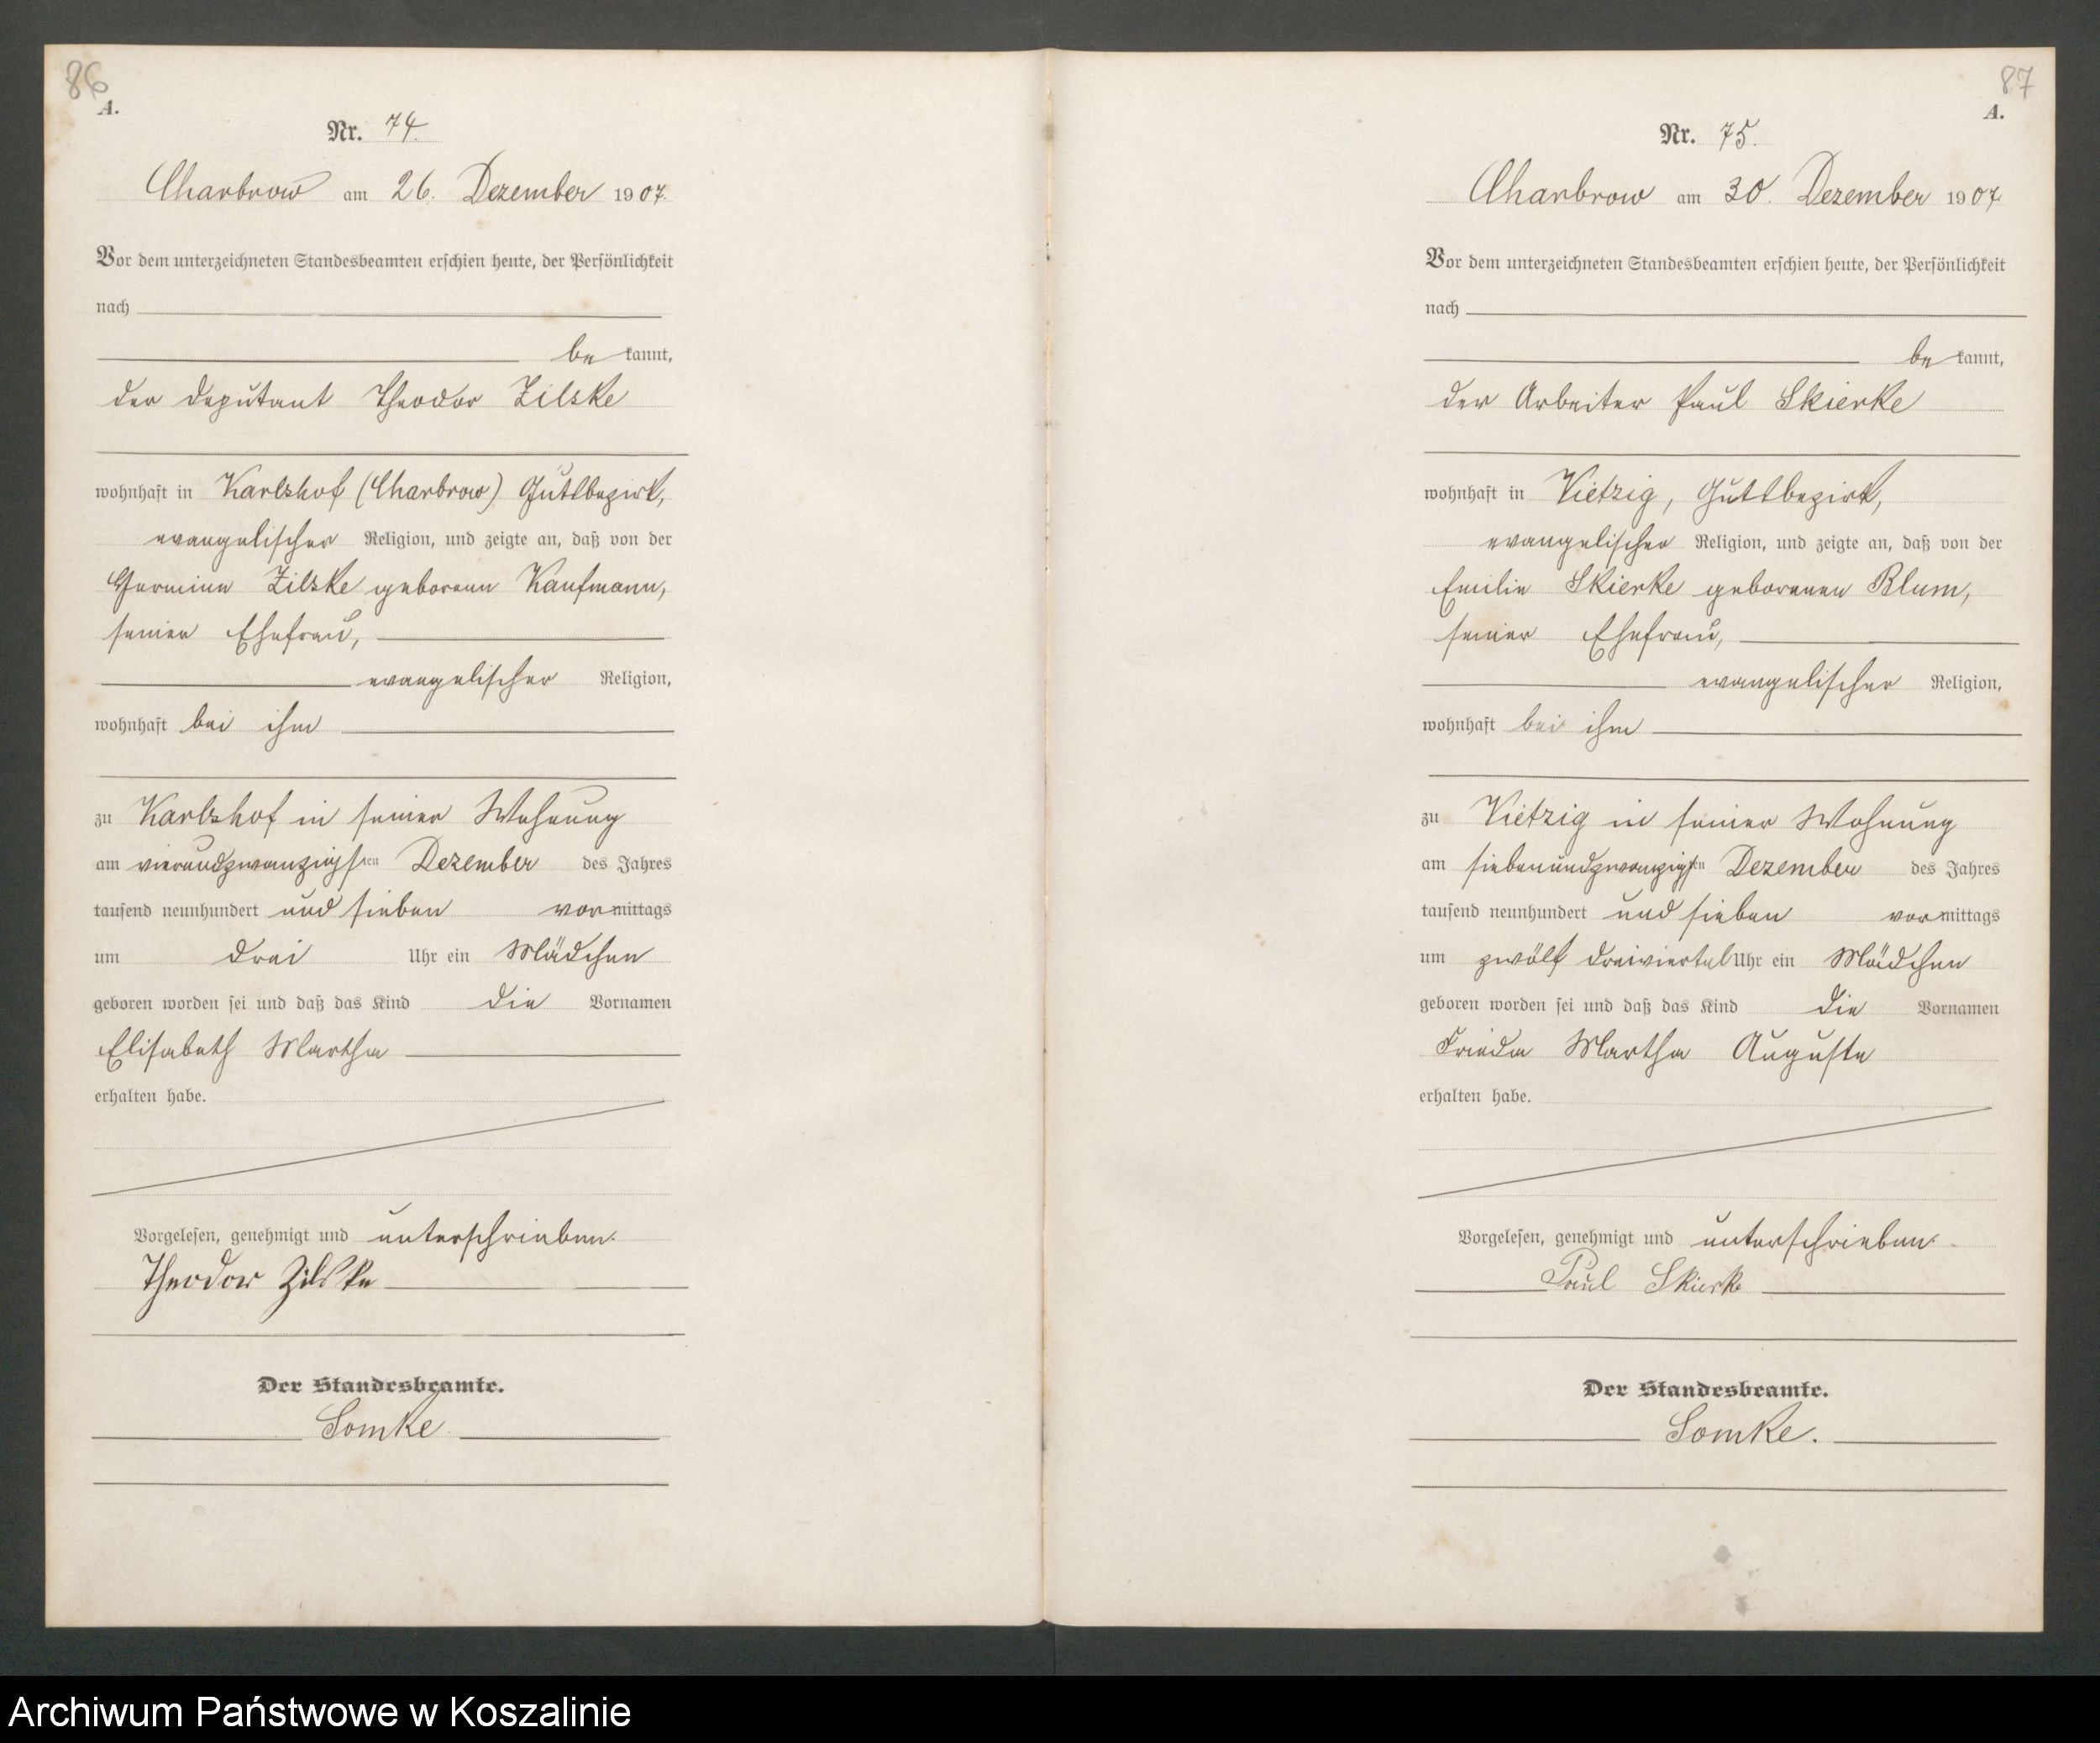 86
A.
Nr. 74.
Charbrow am 26. Dezember 1907.
Vor dem unterzeichneten Standesbeamten erschien heute, der Persönlichkeit
nach
be kannt,
der Deputant Theodor Zilske
wohnhaft in Karlshof (Charbrow) Gutsbezirk,
evangelischer Religion, und zeigte an, daß von der
Hermine Zilske geborenen Kaufmann,
seiner Ehefrau,
evangelischer Religion,
wohnhaft bei ihm
zu Karlshof in seiner Wohnung
am vierundzwanzigsten Dezember des Jahres
tausend neunhundert und sieben vormittags
um drei Uhr ein Mädchen
geboren worden sei und daß das Kind die Vornamen
Elisabeth Martha
erhalten habe.
Vorgelesen, genehmigt und unterschrieben.
Theodor Zilske
Der Standesbeamte.
Somke.
87
A.
Nr. 75.
Charbrow am 30. Dezember 1907
Vor dem unterzeichneten Standesbeamten erschien heute, der Persönlichkeit
nach
be kannt,
der Arbeiter Paul Skierke
wohnhaft in Vietzig, Gutsbezirk,
evangelischer Religion, und zeigte an, daß von der
Emilie Skierke geborenen Blum,
seiner Ehefrau,
evangelischer Religion,
wohnhaft bei ihm
zu Vietzig in seiner Wohnung
am siebenundzwanzigsten Dezember des Jahres
tausend neunhundert und sieben vormittags
um zwölf dreiviertel Uhr ein Mädchen
geboren worden sei und daß das Kind die Vornamen
Frieda Martha Auguste
erhalten habe.
Vorgelesen, genehmigt und unterschrieben.
Paul Skierke
Der Standesbeamte.
Somke.
Archiwum Państwowe w Koszalinie